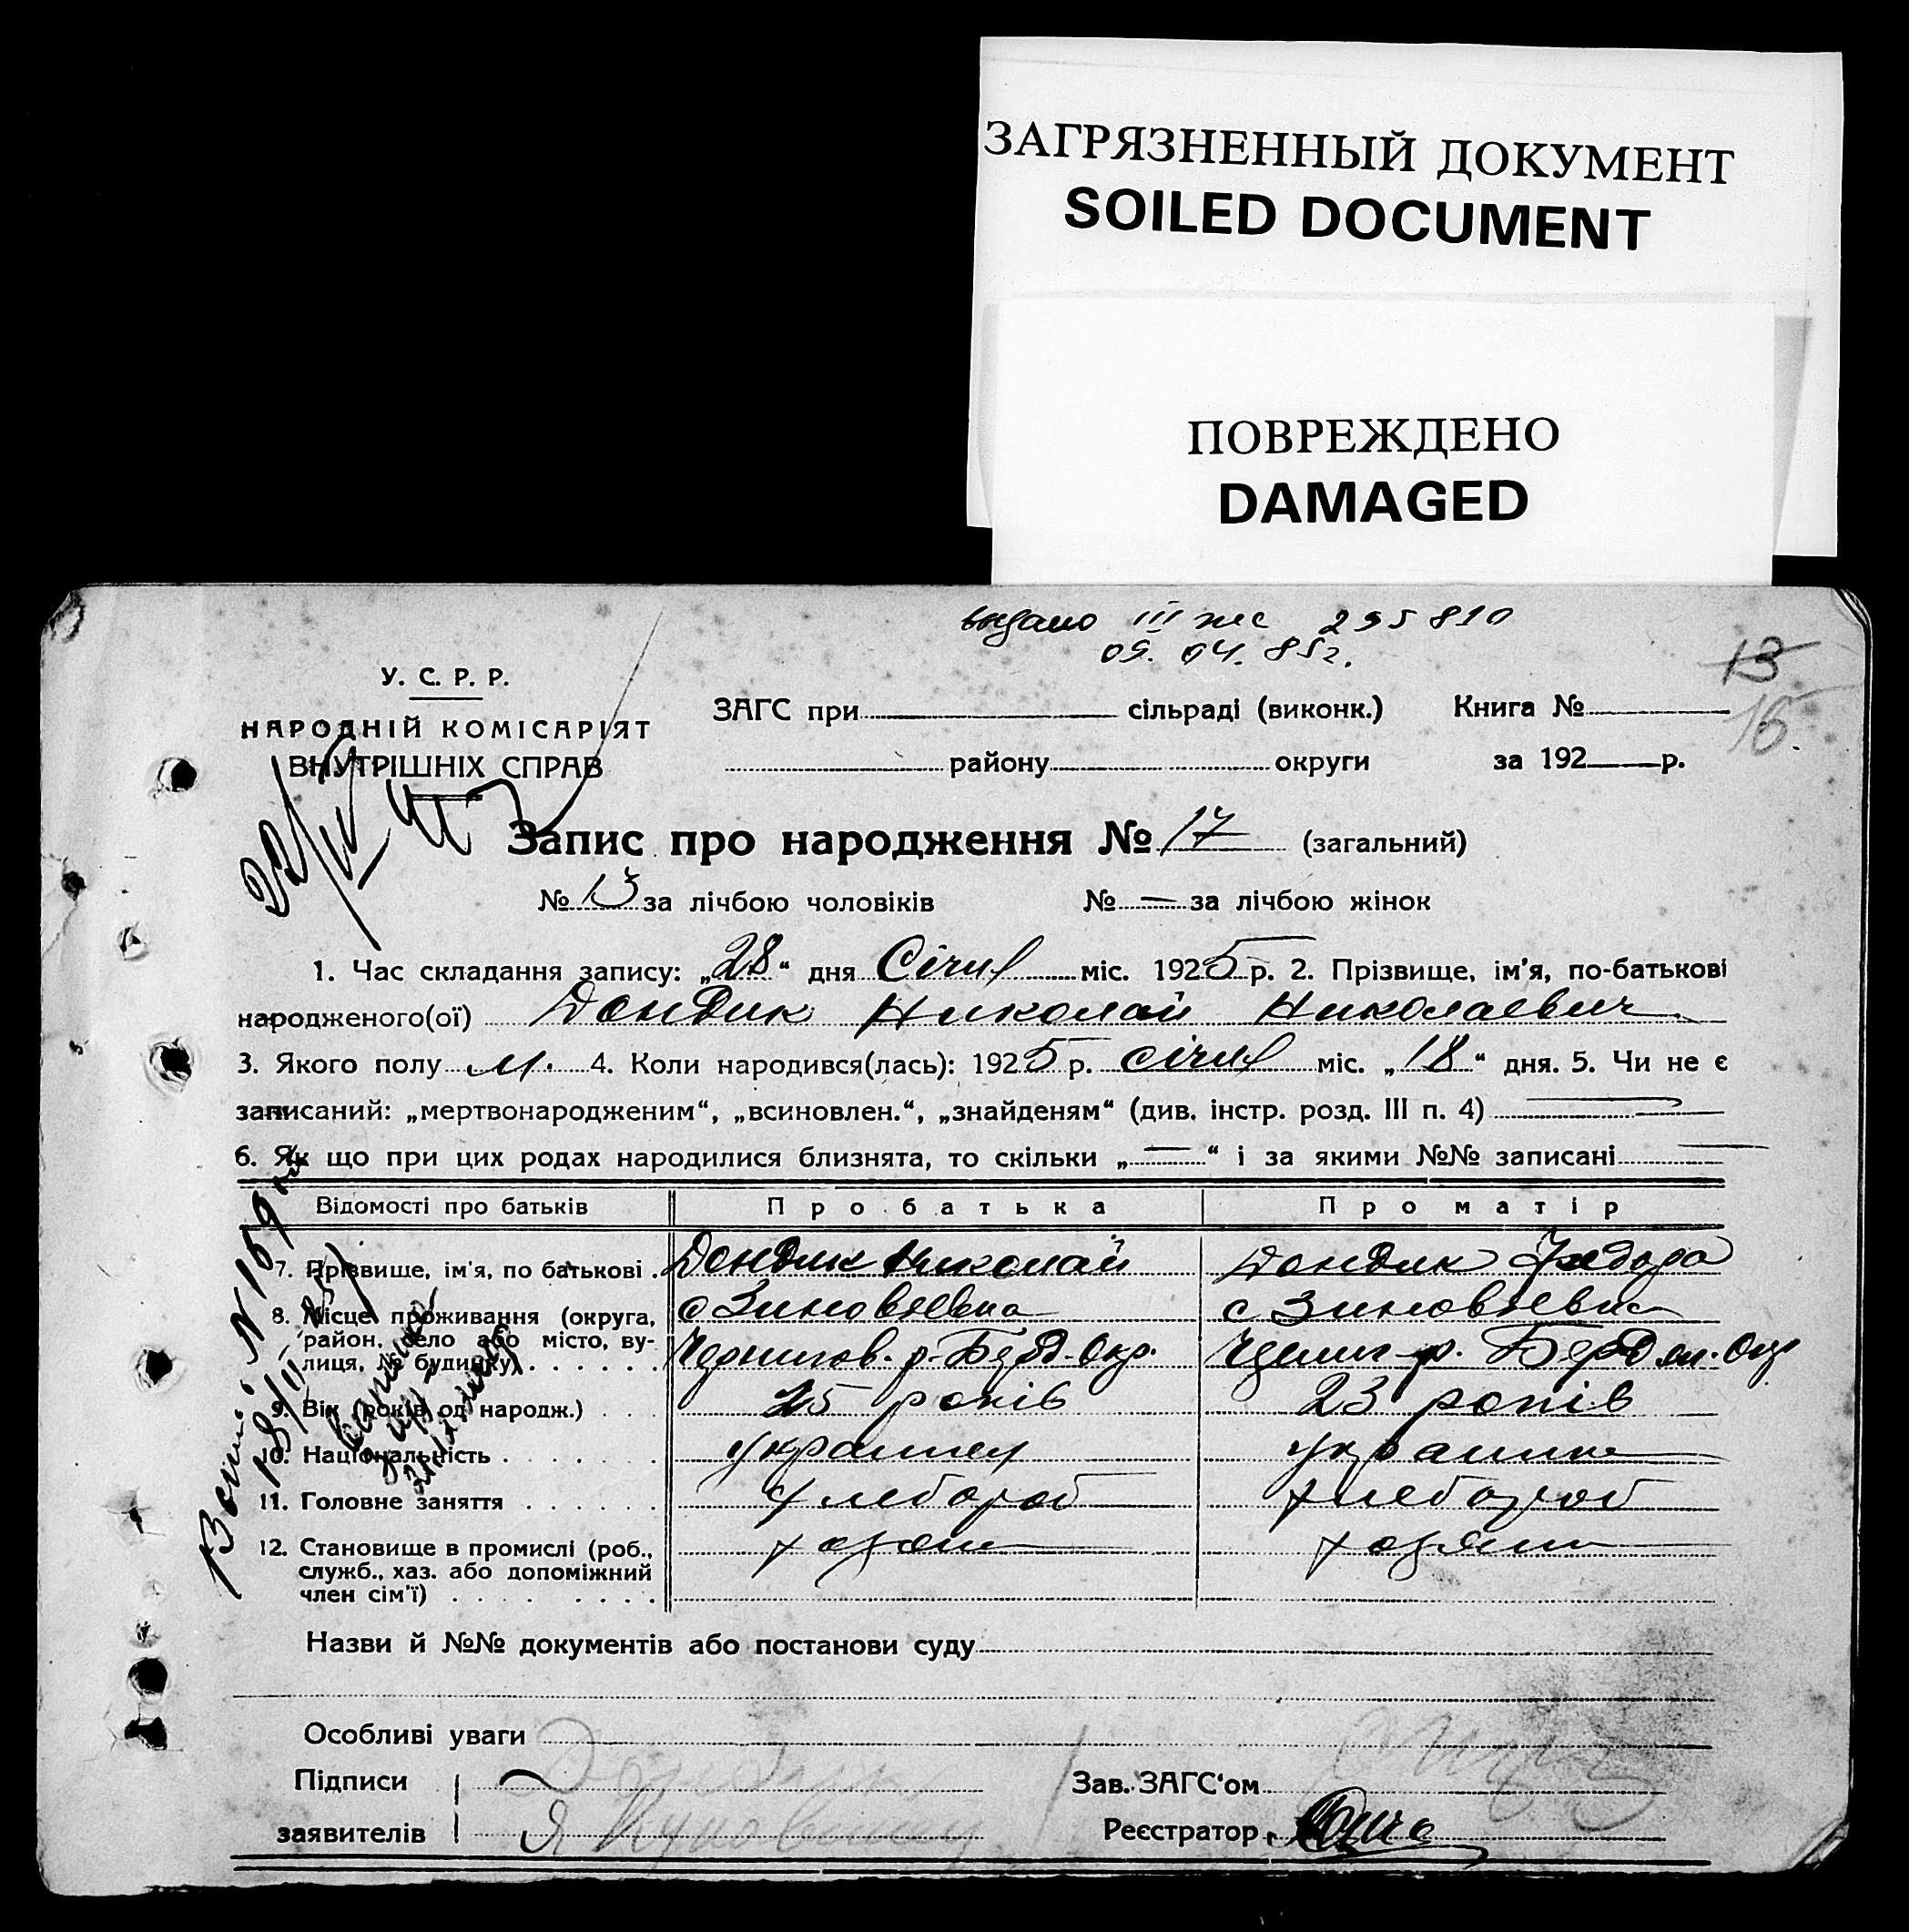 ЗАГРЯЗНЕННЫЙ ДОКУМЕНТ
SOILED DOCUMENT
ПОВРЕЖДЕНО
DAMAGED
выдано III жс 295810
09. 04. 85г.
13
16.
У. С. Р. Р.
НАРОДНІЙ КОМІСАРІЯТ
ВНУТРІШНІХ СПРАВ
ЗАГС при сільраді (виконк.) Книга №
району округи за 192 р.
Запис про народження № 17 (загальний)
№ 13 за лічбою чоловіків № — за лічбою жінок
1. Час складання запису: „28“ дня Січня міс. 1925 р. 2. Прізвище, ім'я, по-батькові
народженого(ої) Дондик Николай Николаевич
3. Якого полу м. 4. Коли народився(лась): 1925 р. січня міс. „18“ дня. 5. Чи не є
записаний: „мертвонародженим“, „всиновлен.“, „знайденям“ (див. інстр. розд. III п. 4) —
6. Як що при цих родах народилися близнята, то скільки „—“ і за якими №№ записані —
Відомості про батьків Про батька Про матір
7. Прізвище, ім'я, по батькові . Дондик Николай Дондик
8. Місце проживання (округа, с Зиновьевка с Зиновьевка
район, село або місто, ву-
лиця, № будинку) . . . . . . Чернигов. р. Берд. Окр. р. Бердян. Окр
9. Вік (років од народж.) . . . 25 років 23 років
10. Національність . . . . . . . украинец украинка
11. Головне заняття . . . . . . хлебороб хлебороб
12. Становище в промислі (роб., хозяин хозяин
служб., хаз. або допоміжний
член сім'ї) . . . . . . . .
Назви й №№ документів або постанови суду
Особливі уваги
Підписи Дондик Зав. ЗАГС'ом
заявителів Реєстратор